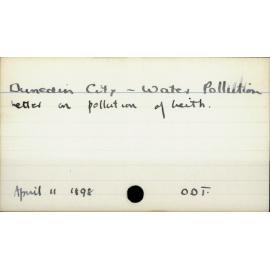 Dunedin City - Water Pollution
Letter on pollution of Leith.
April 11 1898 O.D.T.